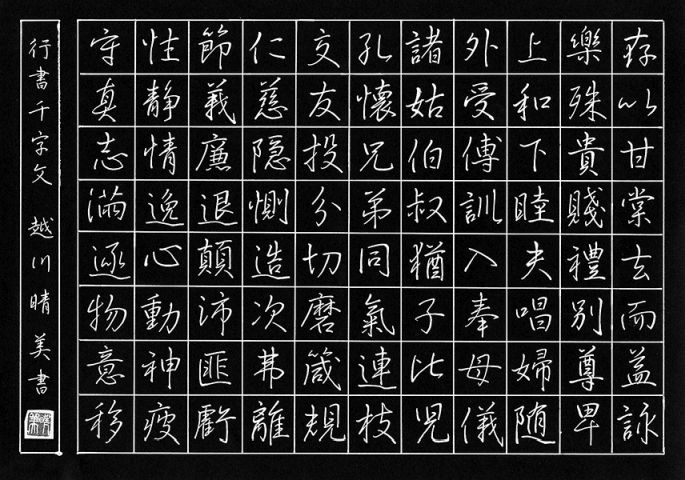 存以甘棠去而益詠
樂殊貴賤禮別尊卑
上和下睦夫唱婦随
外受傅訓入奉母儀
諸姑伯叔猶子比児
孔懐兄弟同氣連枝
交友投分切磨箴規
仁慈隠惻造次弗離
節義廉退顛沛匪虧
性静情逸心動神疲
守真志満逐物意移
行書千字文 越川晴美書